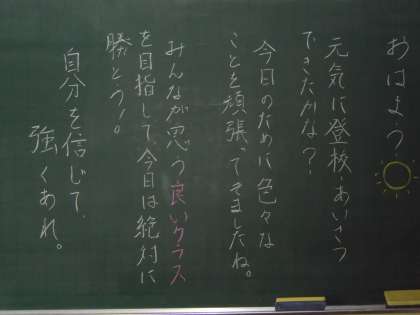 おはよう
元気に登校、あいさつ
できたかな?
今日のために色々な
ことを頑張ってきましたね。
みんなが思う良いクラス
を目指して、今日は絶対に
勝とう!。
自分を信じて、
強くあれ。